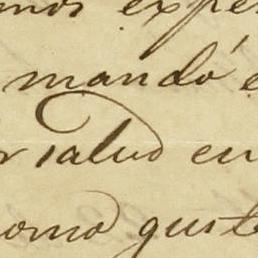 mos expe
mandó e
r salud en
como gust